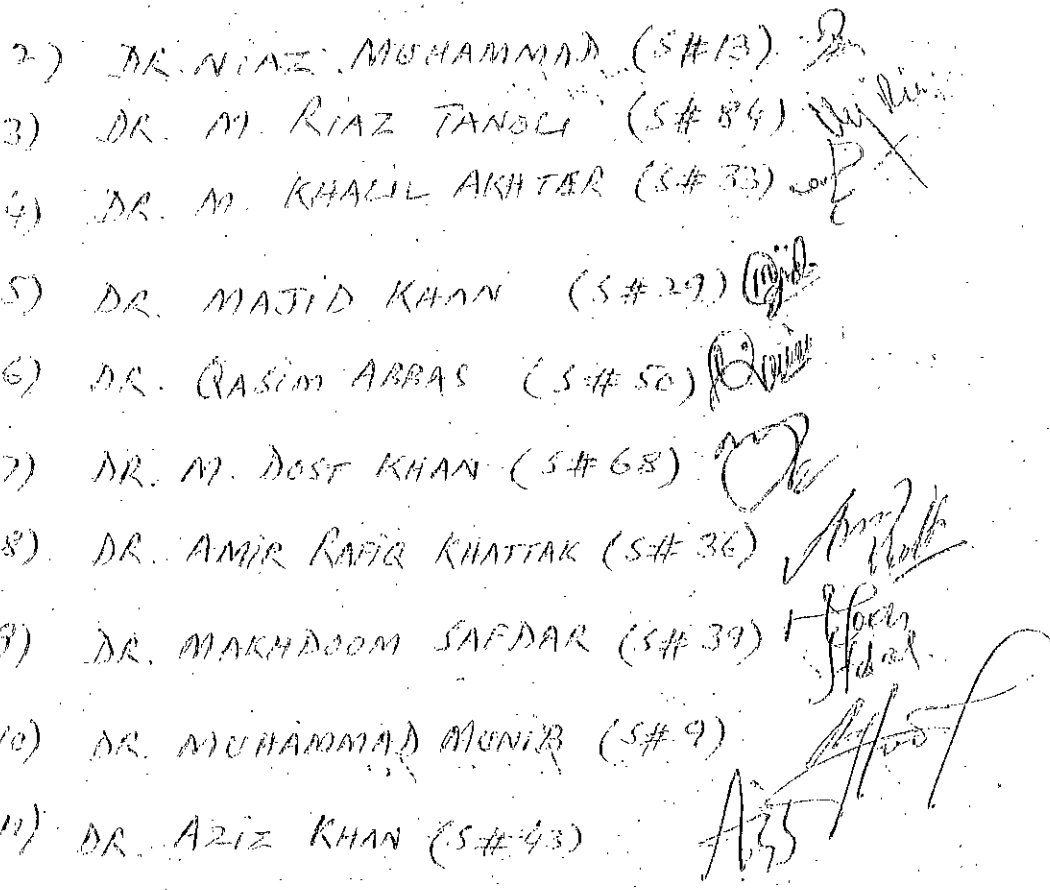 2) DR. NIAZ MUHAMMAD (S#13)
3) DR. M. RIAZ TANOLI (S#84)
4) DR. M. KHALIL AKHTER (S#33)
5) DR. MAJID KHAN (S#29) Majid
6) DR. QASIM ABBAS (S#50)
7) DR. M. DOST KHAN (S#68)
8) DR. AMIR RAFIQ KHATTAK (S#36)
9) DR. MAKHDOOM SAFDAR (S#39)
10) DR. MUHAMMAD MUNIB (S#9)
11) DR. AZIZ KHAN (S#43)